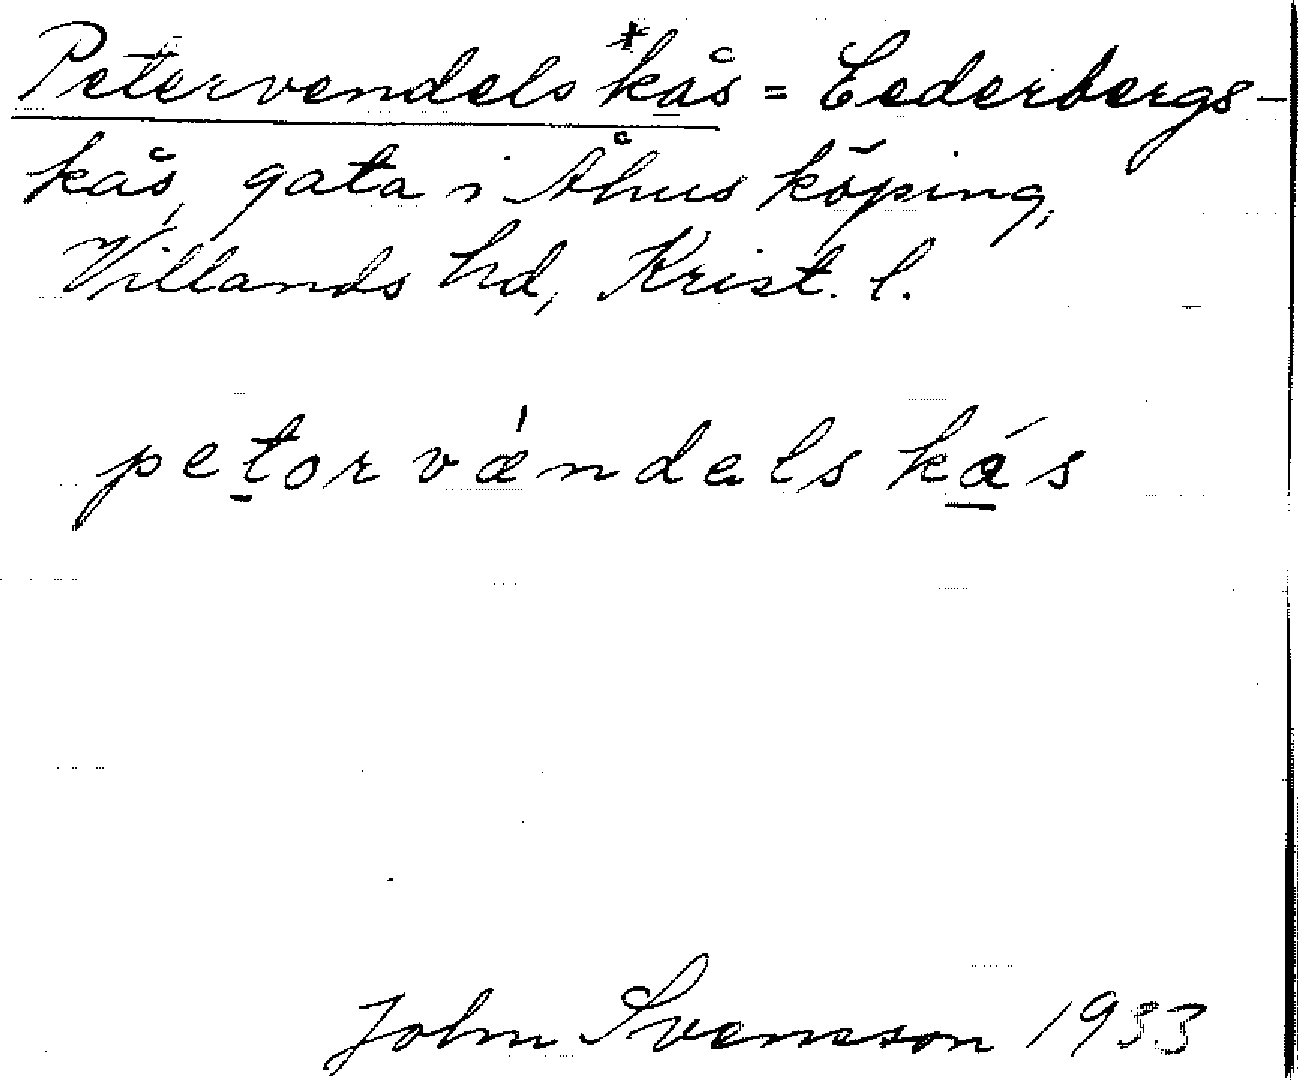 Petervendels *kås = Cederbergs-
kås, gata i Åhus köping,
Villands hd, Krist. l.
petorvändals kás
John Svensson 1933